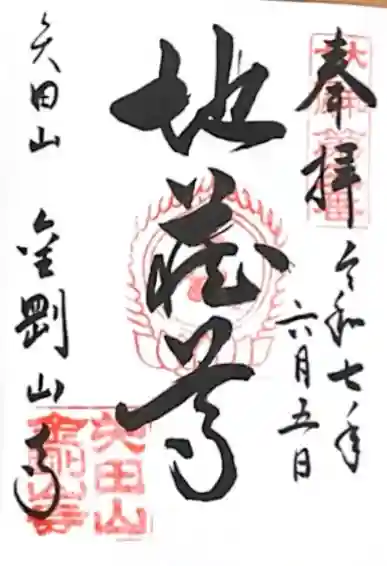 奉拝
令和七年
六月五日
地蔵尊
矢田山
金剛山寺
矢田山
金剛山寺